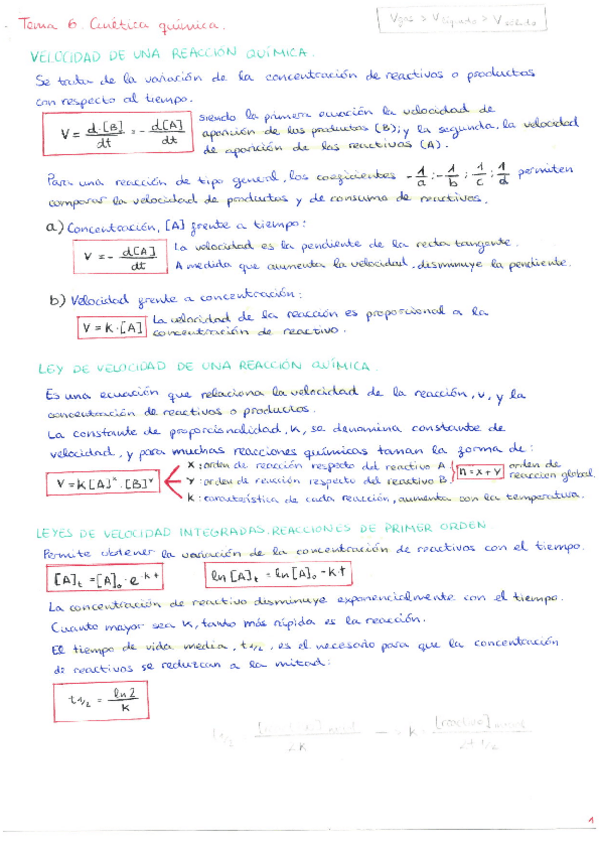 Tema 6. Cinética química.
Vgas > Vlíquido > Vsólido
VELOCIDAD DE UNA REACCIÓN QUÍMICA.
Se trata de la variación de la concentración de reactivos o productos
con respecto al tiempo.
V = d·[B]/dt = - d[A]/dt
siendo la primera ecuación la velocidad de
aparición de los productos (B); y la segunda, la velocidad
de aparición de los reactivos (A).
Para una reacción de tipo general, los coeficientes -1/a ; -1/b ; 1/c ; 1/d permiten
comparar la velocidad de productos y de consumo de reactivos.
a) Concentración, [A] frente a tiempo:
V = - d[A]/dt
La velocidad es la pendiente de la recta tangente.
A medida que aumenta la velocidad, disminuye la pendiente.
b) Velocidad frente a concentración:
V = K·[A]
La velocidad de la reacción es proporcional a la
concentración de reactivo.
LEY DE VELOCIDAD DE UNA REACCIÓN QUÍMICA.
Es una ecuación que relaciona la velocidad de la reacción, v, y la
concentración de reactivos o productos.
La constante de proporcionalidad, k, se denomina constante de
velocidad, y para muchas reacciones químicas toman la forma de:
V = K[A]ˣ·[B]ʸ
x: orden de reacción respecto del reactivo A
y: orden de reacción respecto del reactivo B
n = x + y
orden de
reacción global.
k: característica de cada reacción, aumenta con la temperatura.
LEYES DE VELOCIDAD INTEGRADAS. REACCIONES DE PRIMER ORDEN
Permite obtener la variación de la concentración de reactivos con el tiempo.
[A]t = [A]o · e^-k·t
ln[A]t = ln[A]o - k·t
La concentración de reactivo disminuye exponencialmente con el tiempo.
Cuanto mayor sea K, tanto más rápida es la reacción.
El tiempo de vida media, t1/2, es el necesario para que la concentración
de reactivos se reduzcan a la mitad:
t1/2 = ln2/K
1